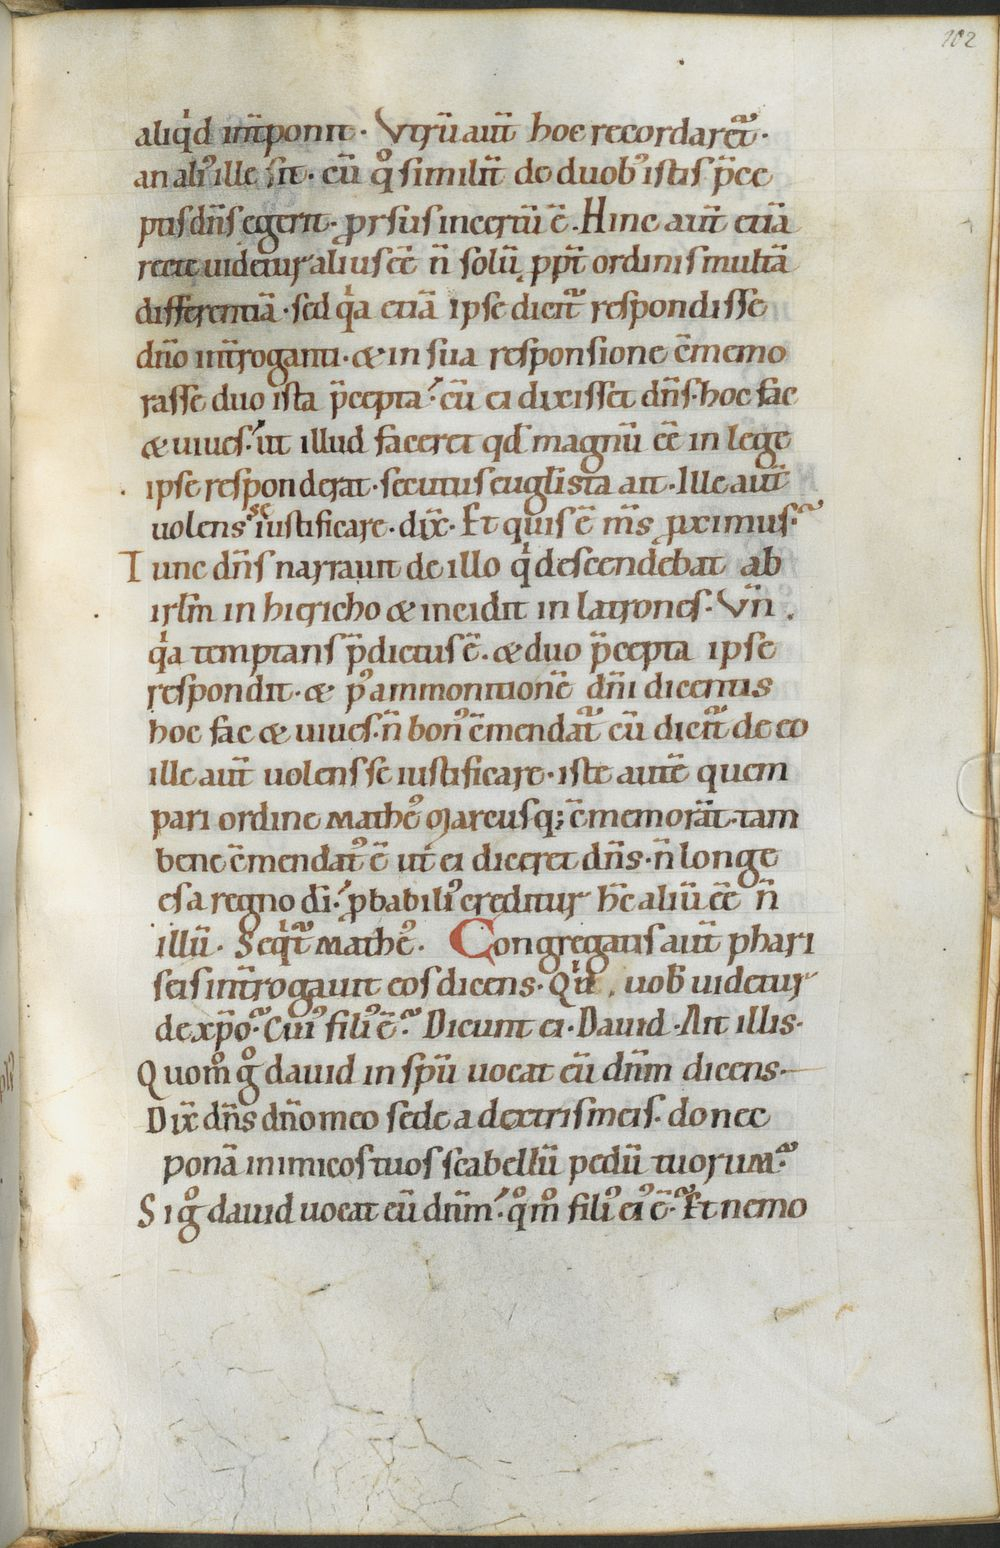 102
aliq̇d int̄ponit. Vtrū aut̄ hoc recordaret᷑.
an ali᾽ ille sit. cū q̊ similit̄ de duob᾽ istis p̄cep
ptis dn̄s egerit. ꝓrsus incertū ē. Hinc aut̄ etiā
recte uidetur alius eē n̄ solū ꝓpt̄ ordinis multā
differentiā. sed qͥa etiā ipse dicit᷑ respondisse
dn̄o int̄roganti. & in sua responsione c̄memo
rasse duo ista p̄cepta. cū ei dixisset dn̄s. hoc fac
& uiues. ut illud faceret qd̄ magnū eē in lege
ipse responderat. secutus eugl̄ista ait. Ille aut̄
uolens se iustificare. dix̄. Et quis ē m̄s ꝓximus?
Tunc dn̄s narrauit de illo qͥ descendebat ab
irl̄m in hiericho & incidit in latrones. Vn̄
qͥa temptans p̄dictus ē. & duo p̄cepta ipse
respondit. & p᾽ ammonitionē dn̄i dicentis
hoc fac & uiues. n̄ bon᾽ c̄mendat᷑ cū dicit᷑ de eo
ille aut̄ uolens se iustificare. iste autē quem
pari ordine Mathe᾽ Marcusq; c̄memorat̄. tam
bene c̄mendat᾽ ē ut ei diceret dn̄s. n̄ longe
es a regno dī. ꝓbabili᾽ creditur hc̄ aliū eē n̄
illū. Seqͥt᷑ Mathe᾽. Congregatis aut̄ phari
seis int̄rogauit eos dicens. Qͥd uob̄ uidetur
de xp̄o? Cui᾽ fili᾽ ē? Dicunt ei. Dauid. Ait illis.
Quom̊ g̊ dauid in sp̄u uocat cū dn̄m dicens.
Dix̄ dn̄s dn̄o meo sede a dextris meis. donec
ponā inimicos tuos scabellū pedū tuorum?
Si g̊ dauid uocat eū dn̄m. q̊m̊ fili᾽ ei᾽ ē? Et nemo